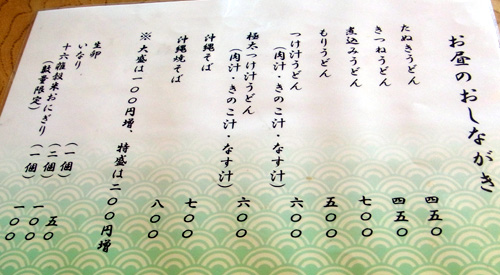 お昼のおしながき
たぬきうどん 四五〇
きつねうどん 四五〇
煮込みうどん 七〇〇
もりうどん 五〇〇
つけ汁うどん 六〇〇
(肉汁・きのこ汁・なす汁)
極太つけ汁うどん 六〇〇
(肉汁・きのこ汁・なす汁)
沖縄そば 七〇〇
沖縄焼そば 八〇〇
※大盛は一〇〇円増、特盛は二〇〇円増
生卵 (一個) 五〇
いなり (二個) 一〇〇
十六雑穀米おにぎり (一個) 一〇〇
(数量限定)